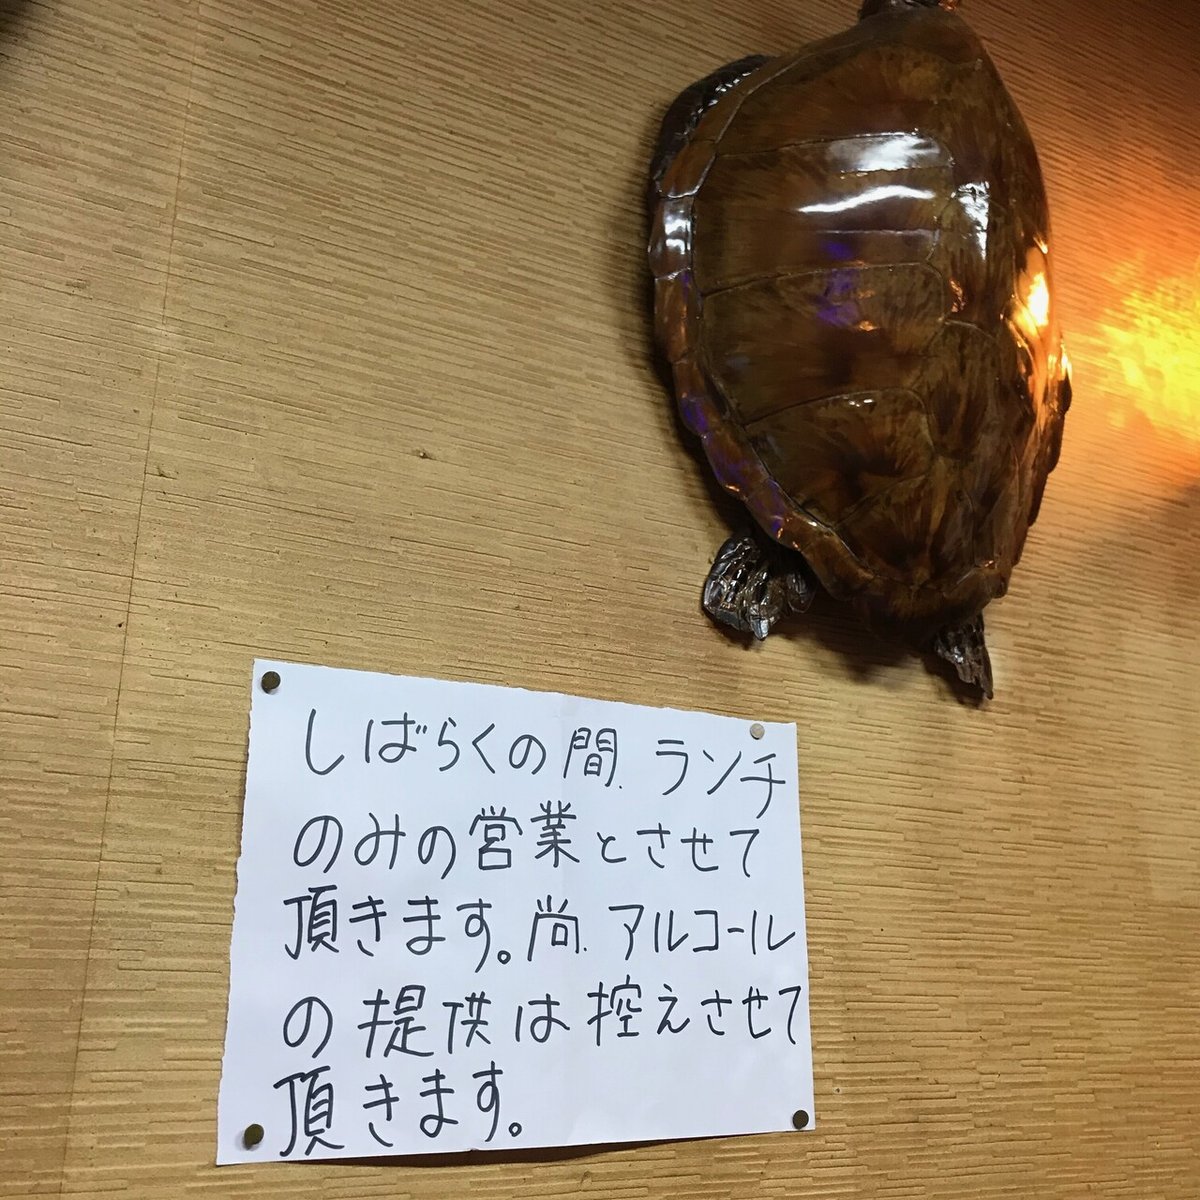 しばらくの間、ランチ
のみの営業とさせて
頂きます。尚、アルコール
の提供は控えさせて
頂きます。